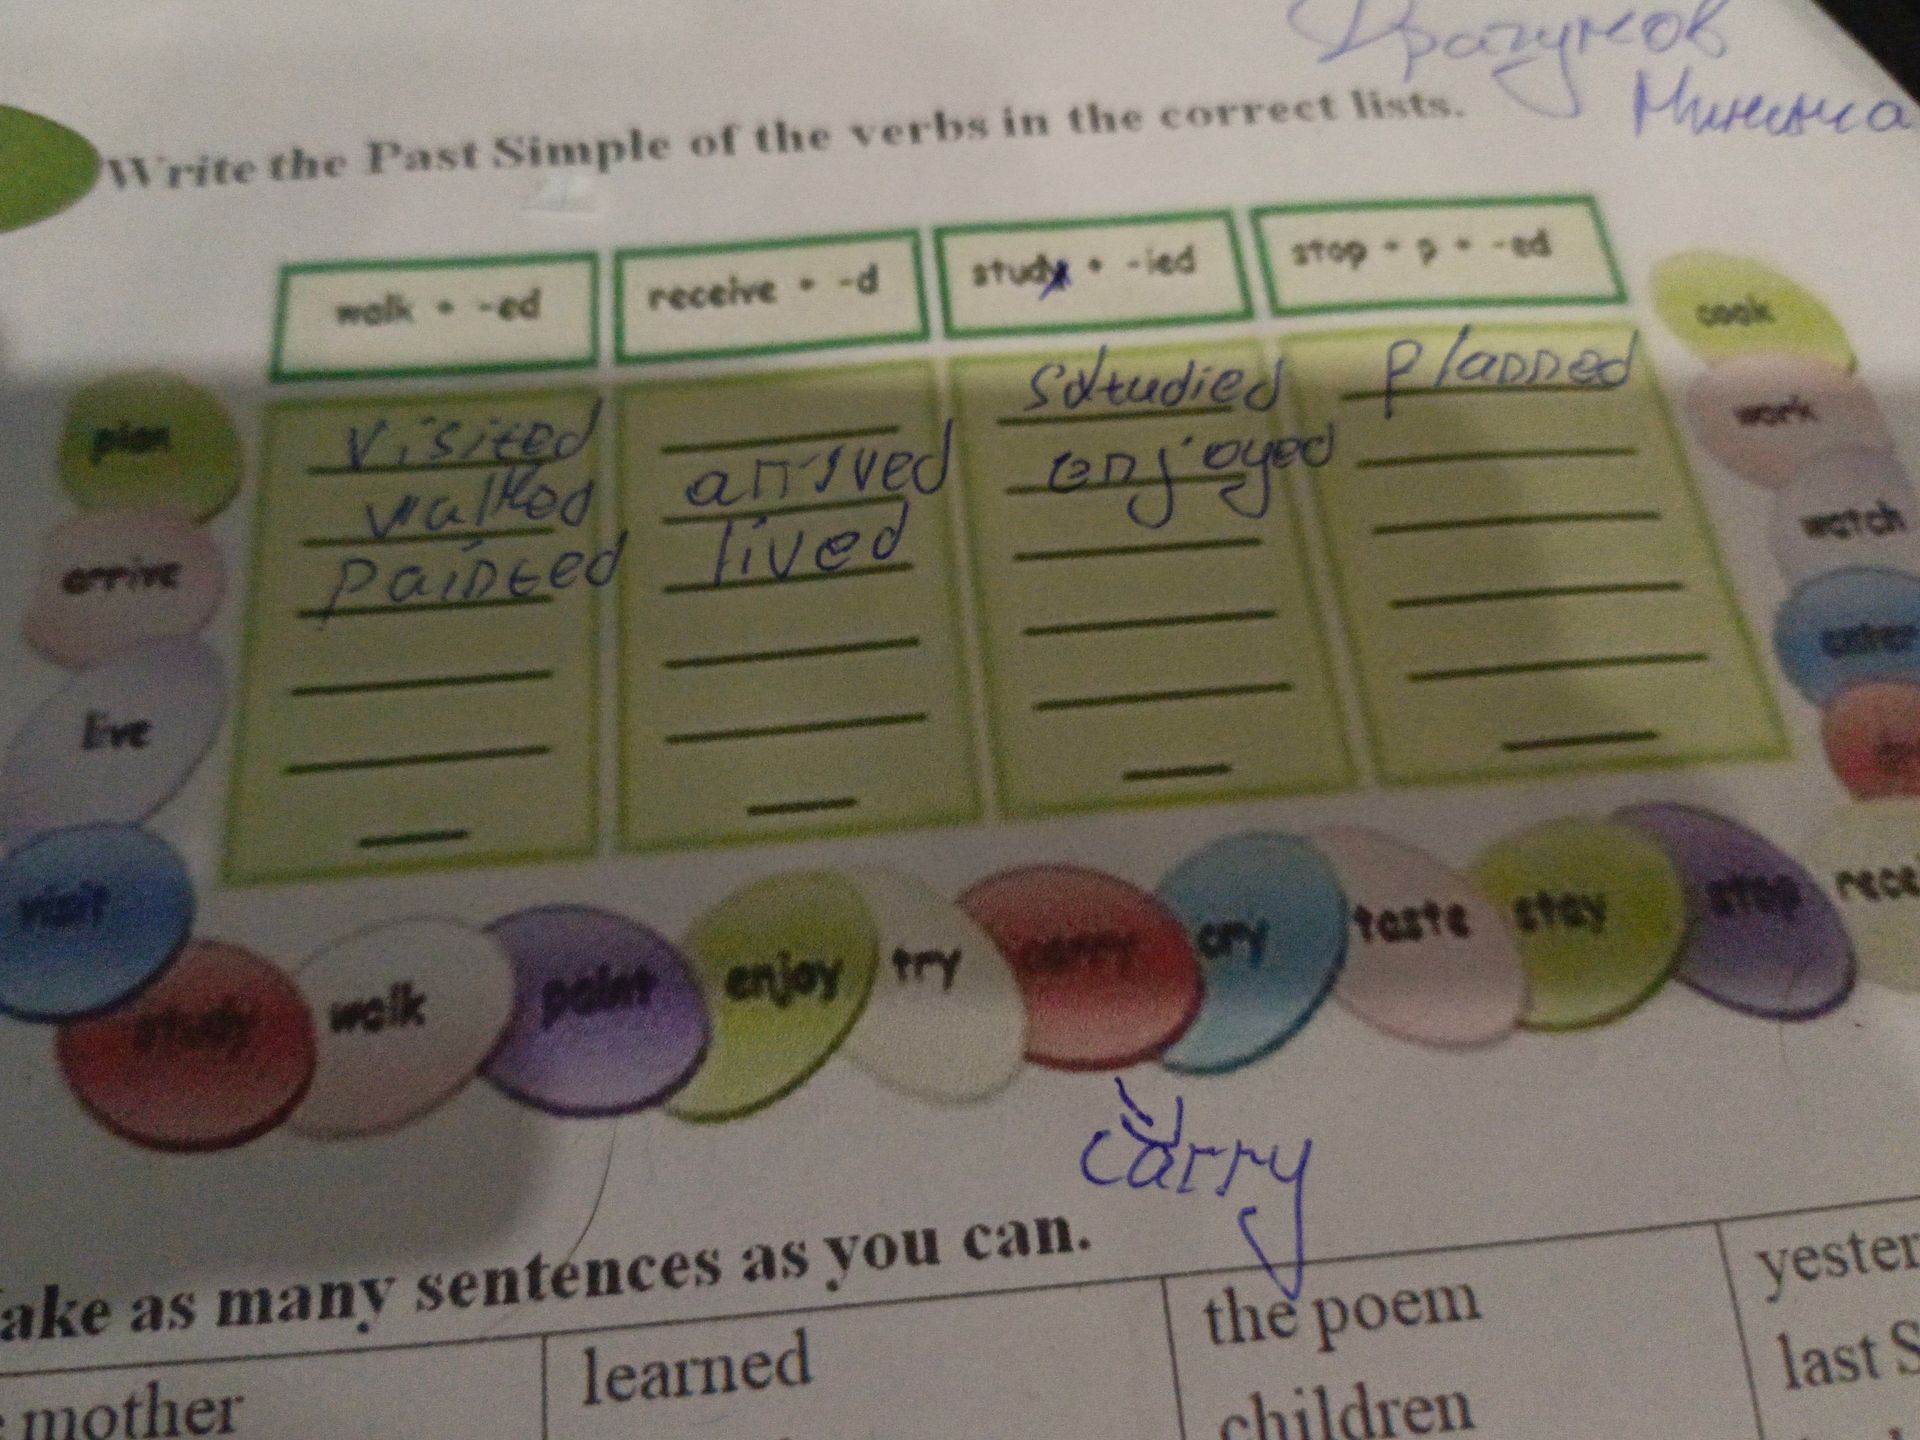 Write the Past Simple of the verbs in the correct lists.
walk + -ed
receive + -d
study + -ied
stop + p + -ed
visited
walked
painted
arrived
lived
studied
enjoyed
planned
plan
arrive
live
visit
study
walk
paint
enjoy
try
carry
cry
taste
stay
stop
recei
cook
work
watch
carry
ake as many sentences as you can.
mother
learned
the poem
children
yester
last S